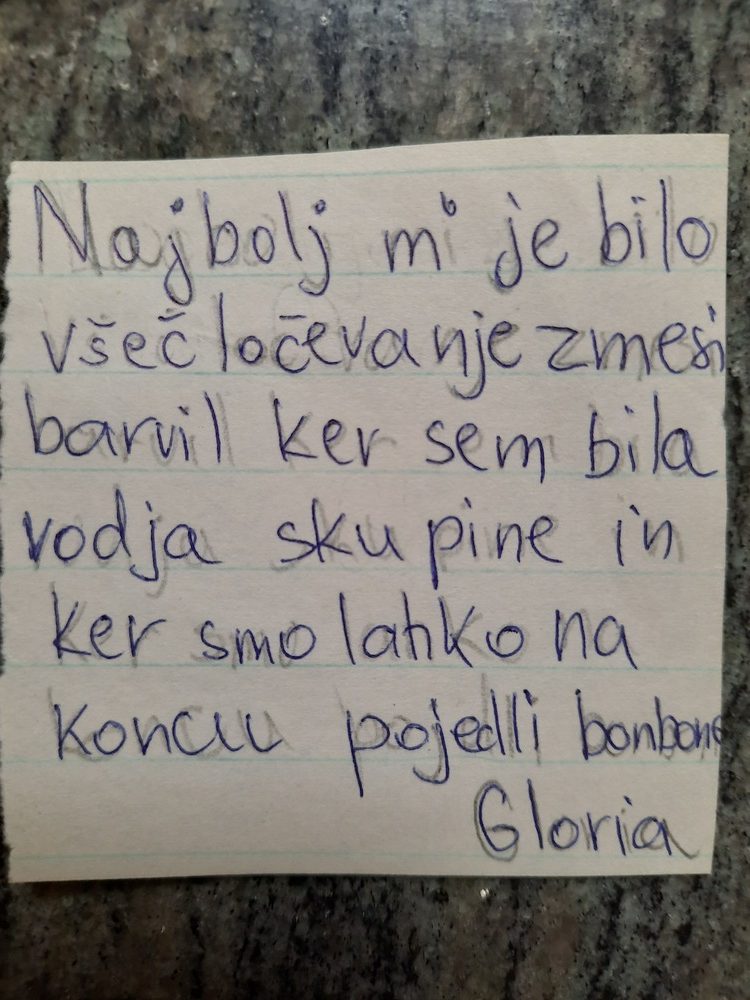 Najbolj mi je bilo
všeč ločevanje zmesi
barvil ker sem bila
vodja skupine in
ker smo lahko na
koncu pojedli bonbone
Gloria